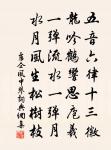 五音六律十三徽
龍吟鶴響思庖羲
一彈流水一彈月
水月風生松樹枝
盧仝風中琴詞典網集